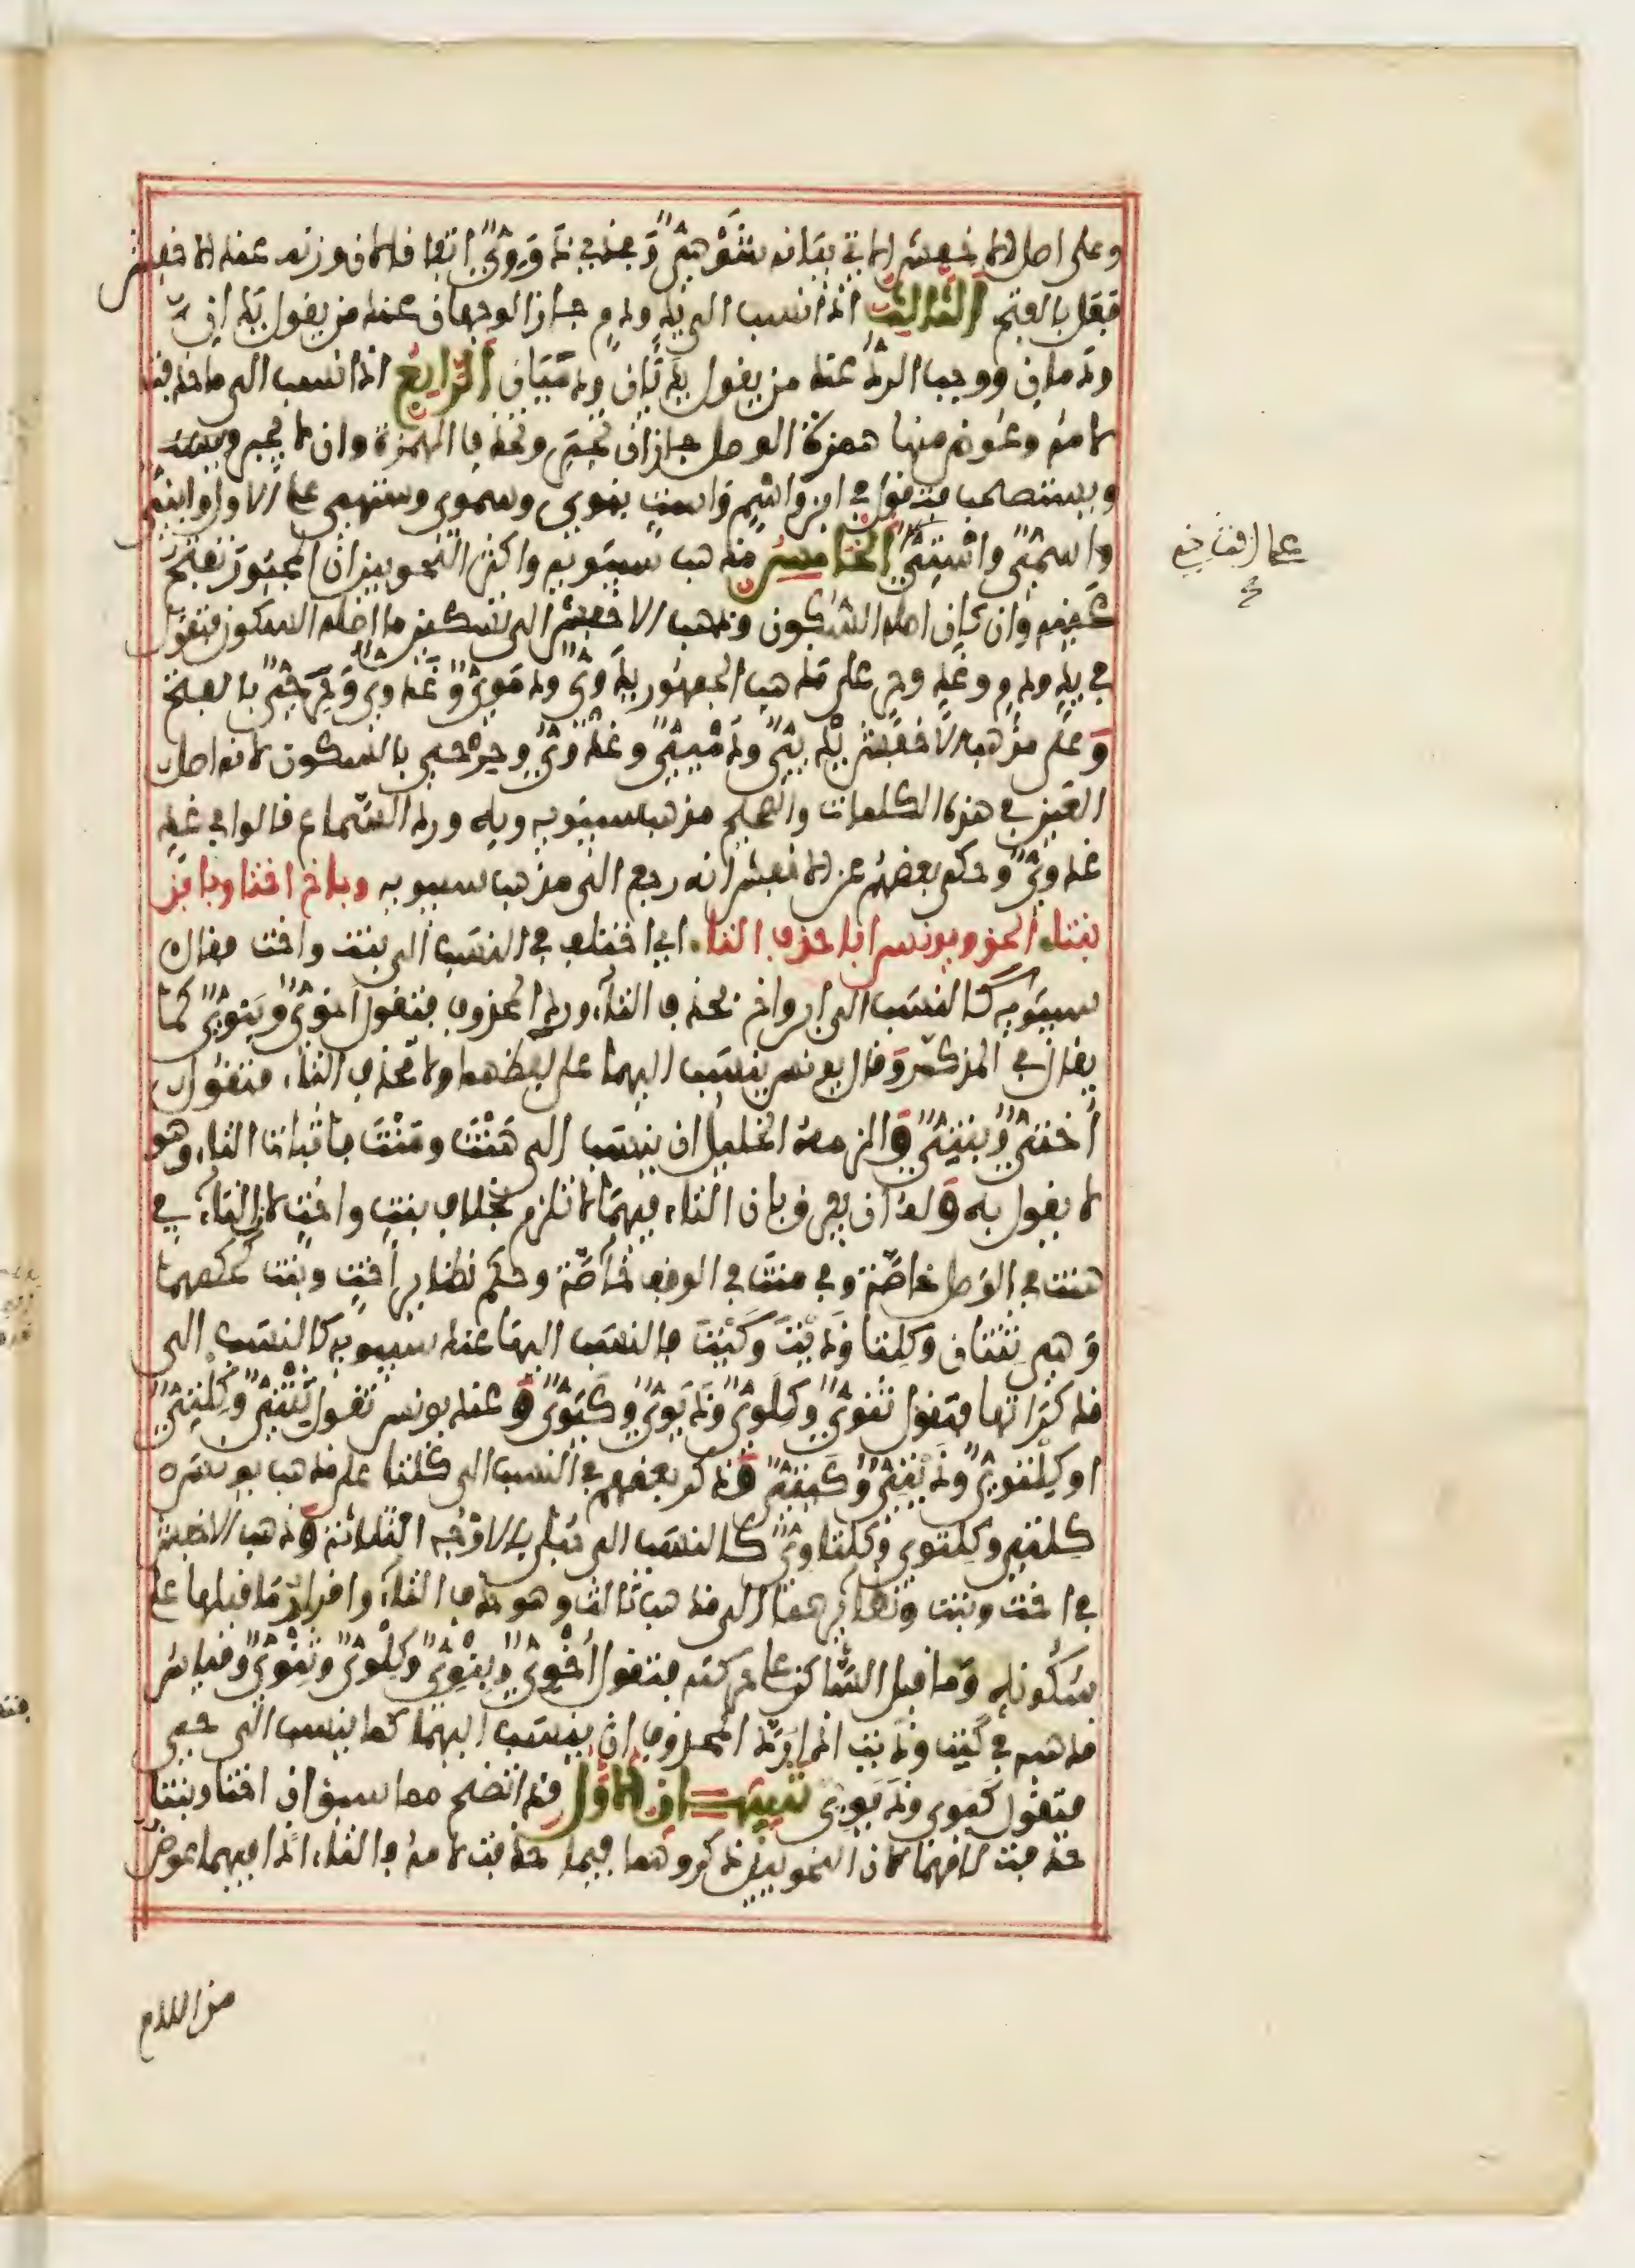 وعلى اصل الاخفش الاتي بيانه شوهي وتقول في ذو ذووي اتفاقا لان وزنه عند الاخفش
فعل بالفتح الثالث اذا نسب الى يد ودم جاز الوجهان عند من يقول يدان
ودمان ووجب الرد عند من يقول يديان ودميان الرابع اذا نسب الى ما حذفت
لامه وعوض منها همزة الوصل جاز ان تجبر وتحذف الهمزة وان لا تجبر
وتستصحب فتقول في ابن واسم واست بنوي وسموي وستهي على الاول وابني
واسمي واستي الخامس مذهب سيبويه واكثر النحويين ان المجبور تفتح
عينه وان كان اصله السكون وذهب الاخفش الى تسكين ما اصله السكون فتقول
في يد ودم وغد وحر على مذهب الجمهور يدوي ودموي وغدوي وحرحي بالفتح
وعلى مذهب الاخفش يديي ودميي وغدوي وحرحي بالسكون لانه اصل
العين في هذه الكلمات والصحيح مذهب سيبويه وبه ورد السماع قالوا في غد
غدوي وحكى بعضهم عن الاخفش انه رجع الى مذهب سيبويه وباخ اختا وبابن
بنتا الحق ويونس ابا حذف التاء اي اختلف في النسب الى بنت واخت فقال
سيبويه كالنسب الى ابن واخ بحذف التاء ورد المحذوف فتقول اخوي وبنوي كما
يقال في المذكر وقال يونس ينسب اليهما على لفظهما ولا تحذف التاء فتقول
اختي وبنتي والزمه الخليل ان ينسب الى هنت ومنت باثبات التاء وهو
لا يقول به وله ان يفرق بان التاء فيهما لا تلزم بخلاف بنت واخت لان التاء في
هنت في الوصل خاصة وفي منت في الوقف خاصة وحكم نظاير اخت وبنت كحكمهما
وهي ثنتان وكلتا وذيت وكيت فالنسب اليها عند سيبويه كالنسب الى
مذكراتها فتقول ثنوي وكلوي وذيوي وكيوي وعند يونس تقول ثنتي وكلتي
او كلتوي وذيتي وكيتي وذكر بعضهم في النسب الى كلتا على مذهب يونس
كلتي وكلتوي وكلتاوي كالنسب الى حبلى بالاوجه الثلاثة وذهب الاخفش
في اخت وبنت ونظايرهما الى مذهب ثالث وهو حذف التاء واقرار ما قبلها على
سكونه وما قبل الساكن على حركته فتقول اخوي وبنوي وكلوي وثنوي وقياس
مذهبه في كيت وذيت اذا رد المحذوف ان ينسب اليهما كما ينسب الى حي
فتقول كيوي وذيوي تنبيهان الاول قد اتضح مما سبق ان اختا وبنتا
حذفت لامهما لان النحويين ذكروهما فيما حذفت لامه فالتاء اذا فيهما عوض
من اللام